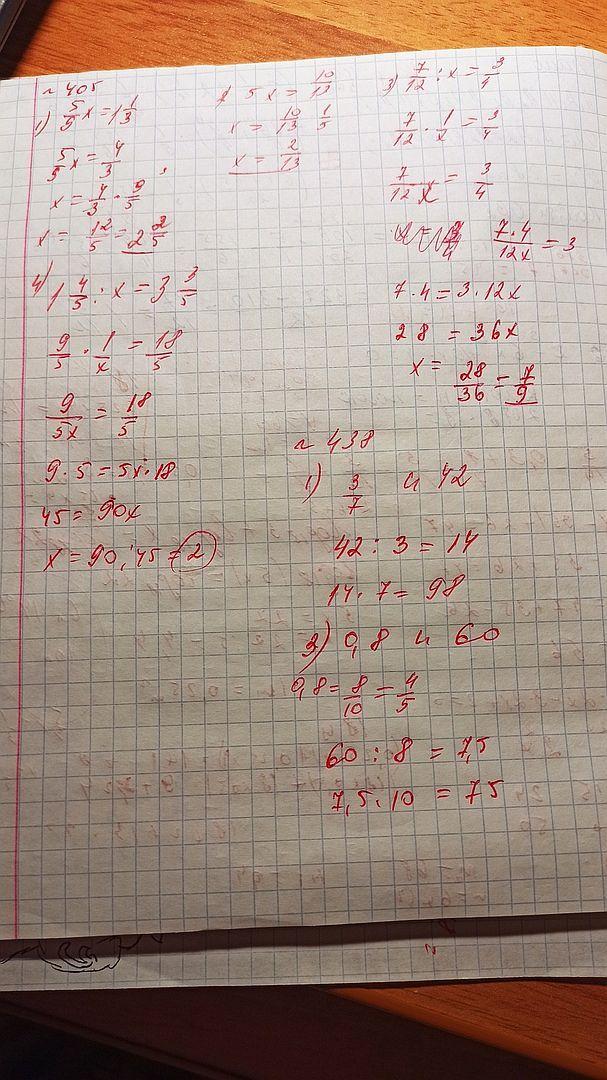 № 405
1) 5/9 x = 1 1/3
5/9 x = 4/3
x = 4/3 · 9/5
x = 12/5 = 2 2/5
2) 5x = 10/13
x = 10/13 · 1/5
x = 2/13
3) 7/12 : x = 3/4
7/12 · 1/x = 3/4
7/12x = 3/4
7·4/12x = 3
7·4 = 3·12x
28 = 36x
x = 28/36 = 7/9
4) 1 4/5 : x = 3 3/5
9/5 · 1/x = 18/5
9/5x = 18/5
9·5 = 5x·18
45 = 90x
x = 90:45 = 2
№ 438
1) 3/7 и 42
42 : 3 = 14
14·7 = 98
3) 0,8 и 60
0,8 = 8/10 = 4/5
60 : 8 = 7,5
7,5·10 = 75